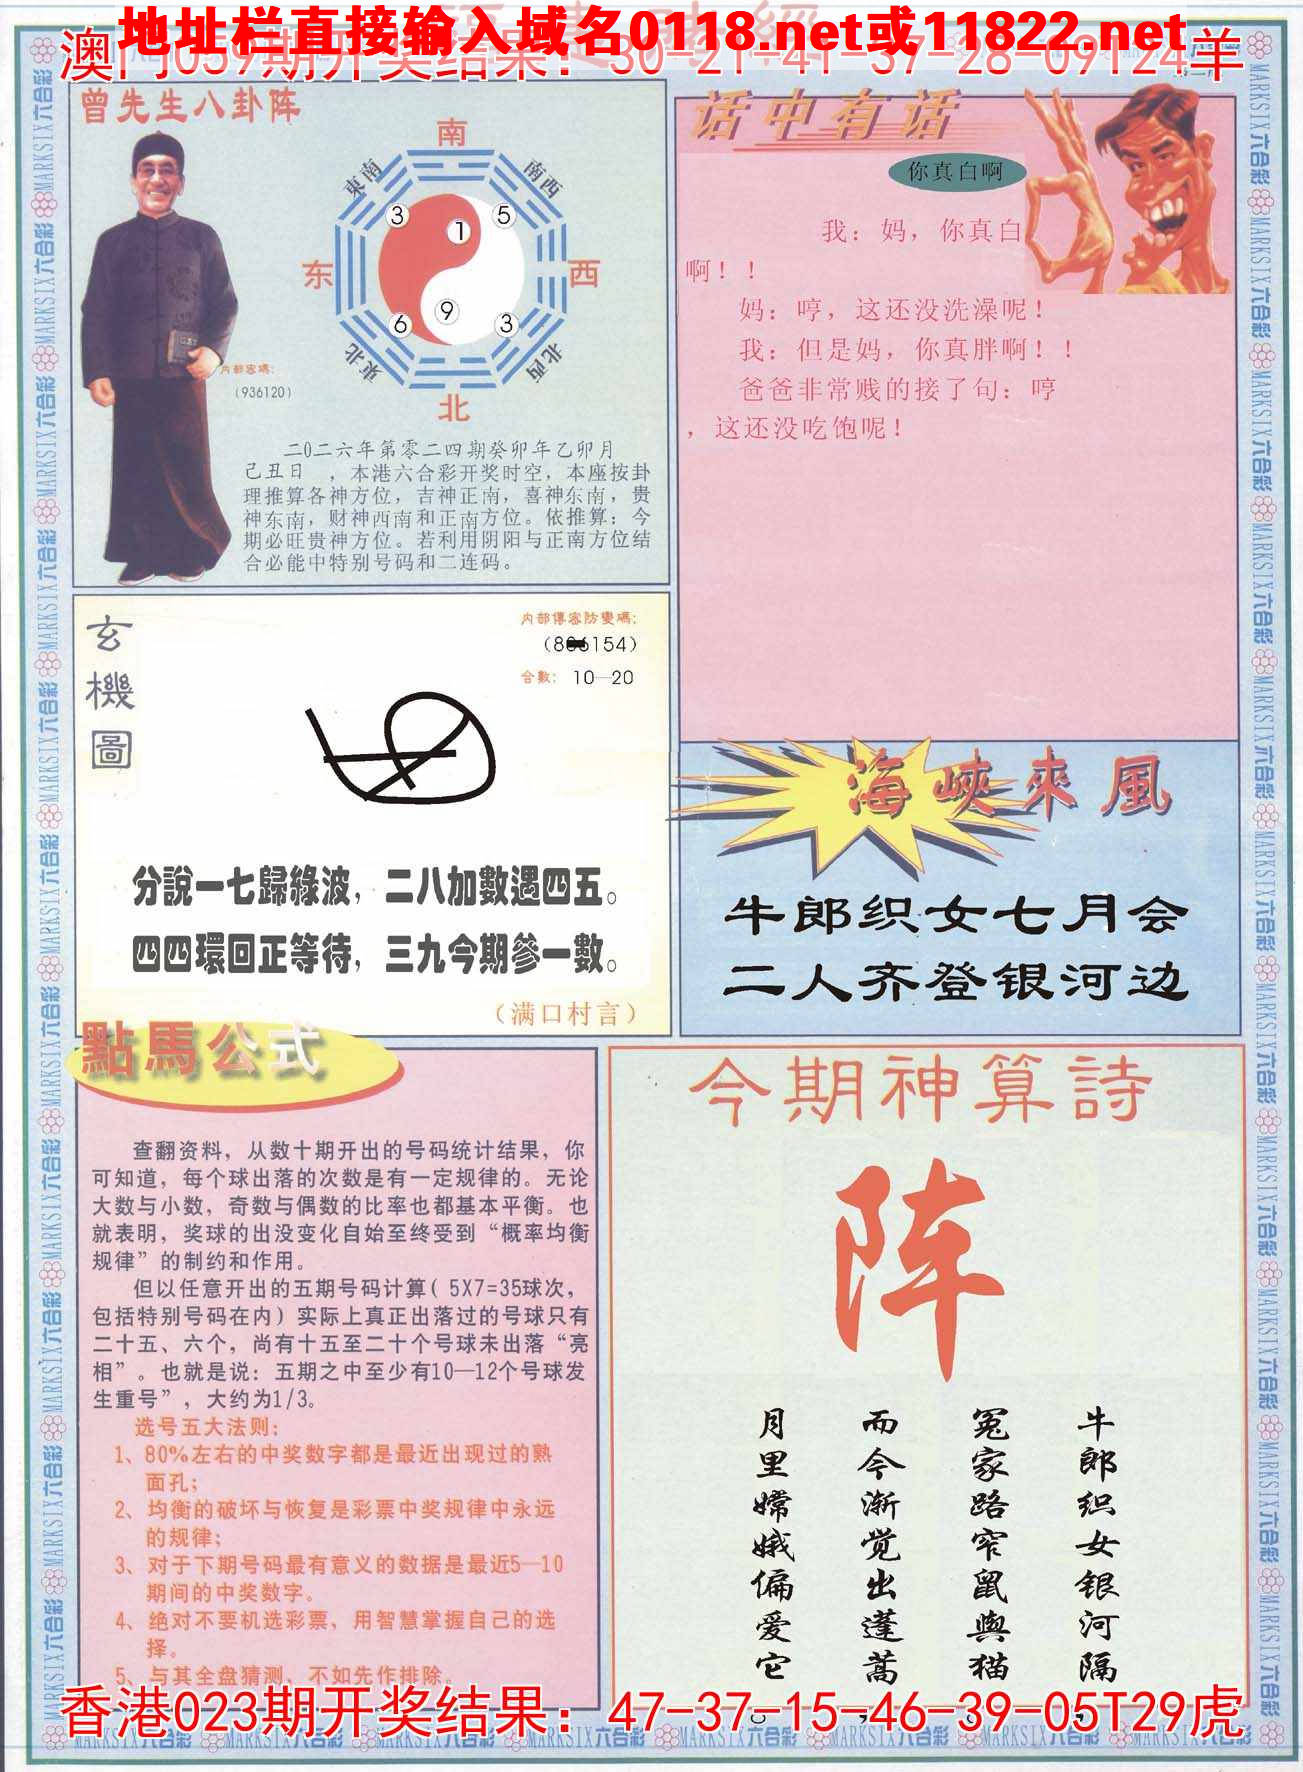 地址栏直接输入域名0118.net或11822.net
澳门059期开奖结果：30-21-41-37-28-09T24羊
曾先生八卦阵
南
東南
南西
3
5
1
东
西
9
6
3
東北
北西
北
内部密碼：
（936120）
二0二六年第零二四期癸卯年乙卯月
己丑日　，本港六合彩开奖时空，本座按卦
理推算各神方位，吉神正南，喜神东南，贵
神东南，财神西南和正南方位。依推算：今
期必旺贵神方位。若利用阴阳与正南方位结
合必能中特别号码和二连码。
话中有话
你真白啊
我：妈，你真白
啊！！
妈：哼，这还没洗澡呢！
我：但是妈，你真胖啊！！
爸爸非常贱的接了句：哼
，这还没吃饱呢！
玄機圖
内部傳密防變碼：
154）
合數：10—20
分說一七歸綠波，二八加數遇四五。
四四環回正等待，三九今期參一數。
（满口村言）
海峽來風
牛郎织女七月会
二人齐登银河边
點馬公式
查翻资料，从数十期开出的号码统计结果，你
可知道，每个球出落的次数是有一定规律的。无论
大数与小数，奇数与偶数的比率也都基本平衡。也
就表明，奖球的出没变化自始至终受到“概率均衡
规律”的制约和作用。
但以任意开出的五期号码计算（5X7=35球次，
包括特别号码在内）实际上真正出落过的号球只有
二十五、六个，尚有十五至二十个号球未出落“亮
相”。也就是说：五期之中至少有10—12个号球发
生重号”，大约为1/3。
选号五大法则：
1、80%左右的中奖数字都是最近出现过的熟
面孔；
2、均衡的破坏与恢复是彩票中奖规律中永远
的规律；
3、对于下期号码最有意义的数据是最近5—10
期间的中奖数字。
4、绝对不要机选彩票，用智慧掌握自己的选
择。
5、与其全盘猜测，不如先作排除。
今期神算詩
阵
牛郎织女银河隔
冤家路窄鼠與猫
而今渐觉出蓬蒿
月里嫦娥偏爱它
香港023期开奖结果：47-37-15-46-39-05T29虎
MARKSIX六合彩